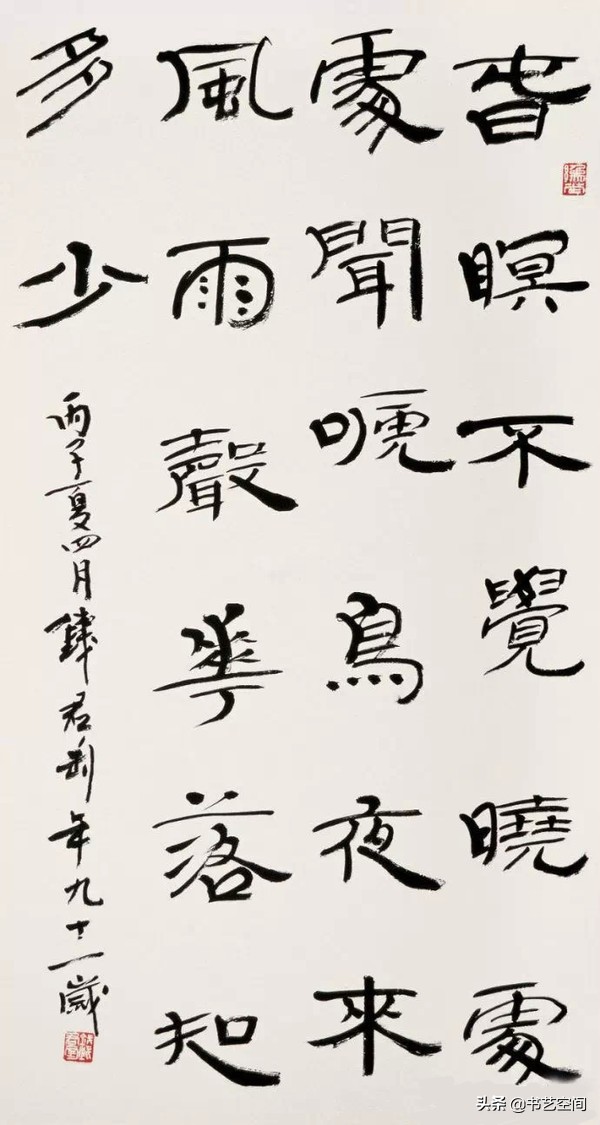 旾瞑不覺曉處
處聞嗁鳥夜來
風雨聲華落知
多少
丙子夏四月錢君匋年九十二歲
头条 @书艺空间